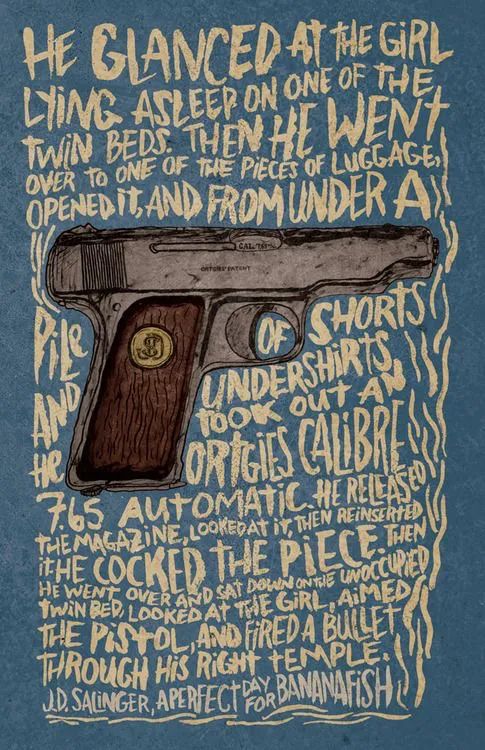 HE GLANCED AT THE GIRL
LYING ASLEEP ON ONE OF THE
TWIN BEDS. THEN HE WENT
OVER TO ONE OF THE PIECES OF LUGGAGE,
OPENED IT, AND FROM UNDER A
CAL. 7.65
ORTGIES' PATENT
PILE OF SHORTS
AND UNDERSHIRTS,
HE TOOK OUT AN
ORTGIES CALIBRE
7.65 AUTOMATIC. HE RELEASED
THE MAGAZINE, LOOKED AT IT, THEN REINSERTED
IT. HE COCKED THE PIECE. THEN
HE WENT OVER AND SAT DOWN ON THE UNOCCUPIED
TWIN BED, LOOKED AT THE GIRL, AIMED
THE PISTOL, AND FIRED A BULLET
THROUGH HIS RIGHT TEMPLE.
J.D. SALINGER, A PERFECT DAY FOR BANANAFISH